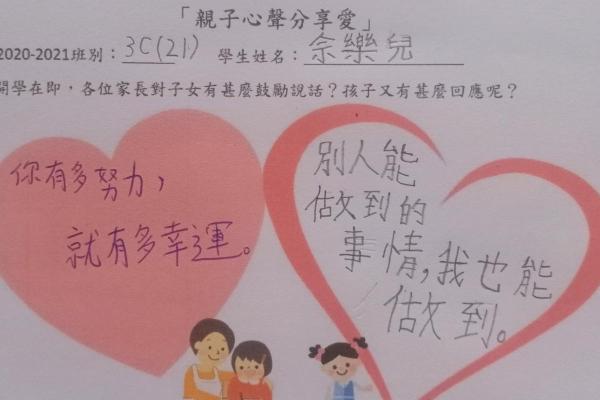 「親子心聲分享愛」
2020-2021班別：3C(21) 學生姓名：佘樂兒
開學在即，各位家長對子女有甚麼鼓勵說話？孩子又有甚麼回應呢？
你有多努力，
就有多幸運。
別人能
做到的
事情,我也能
做到。